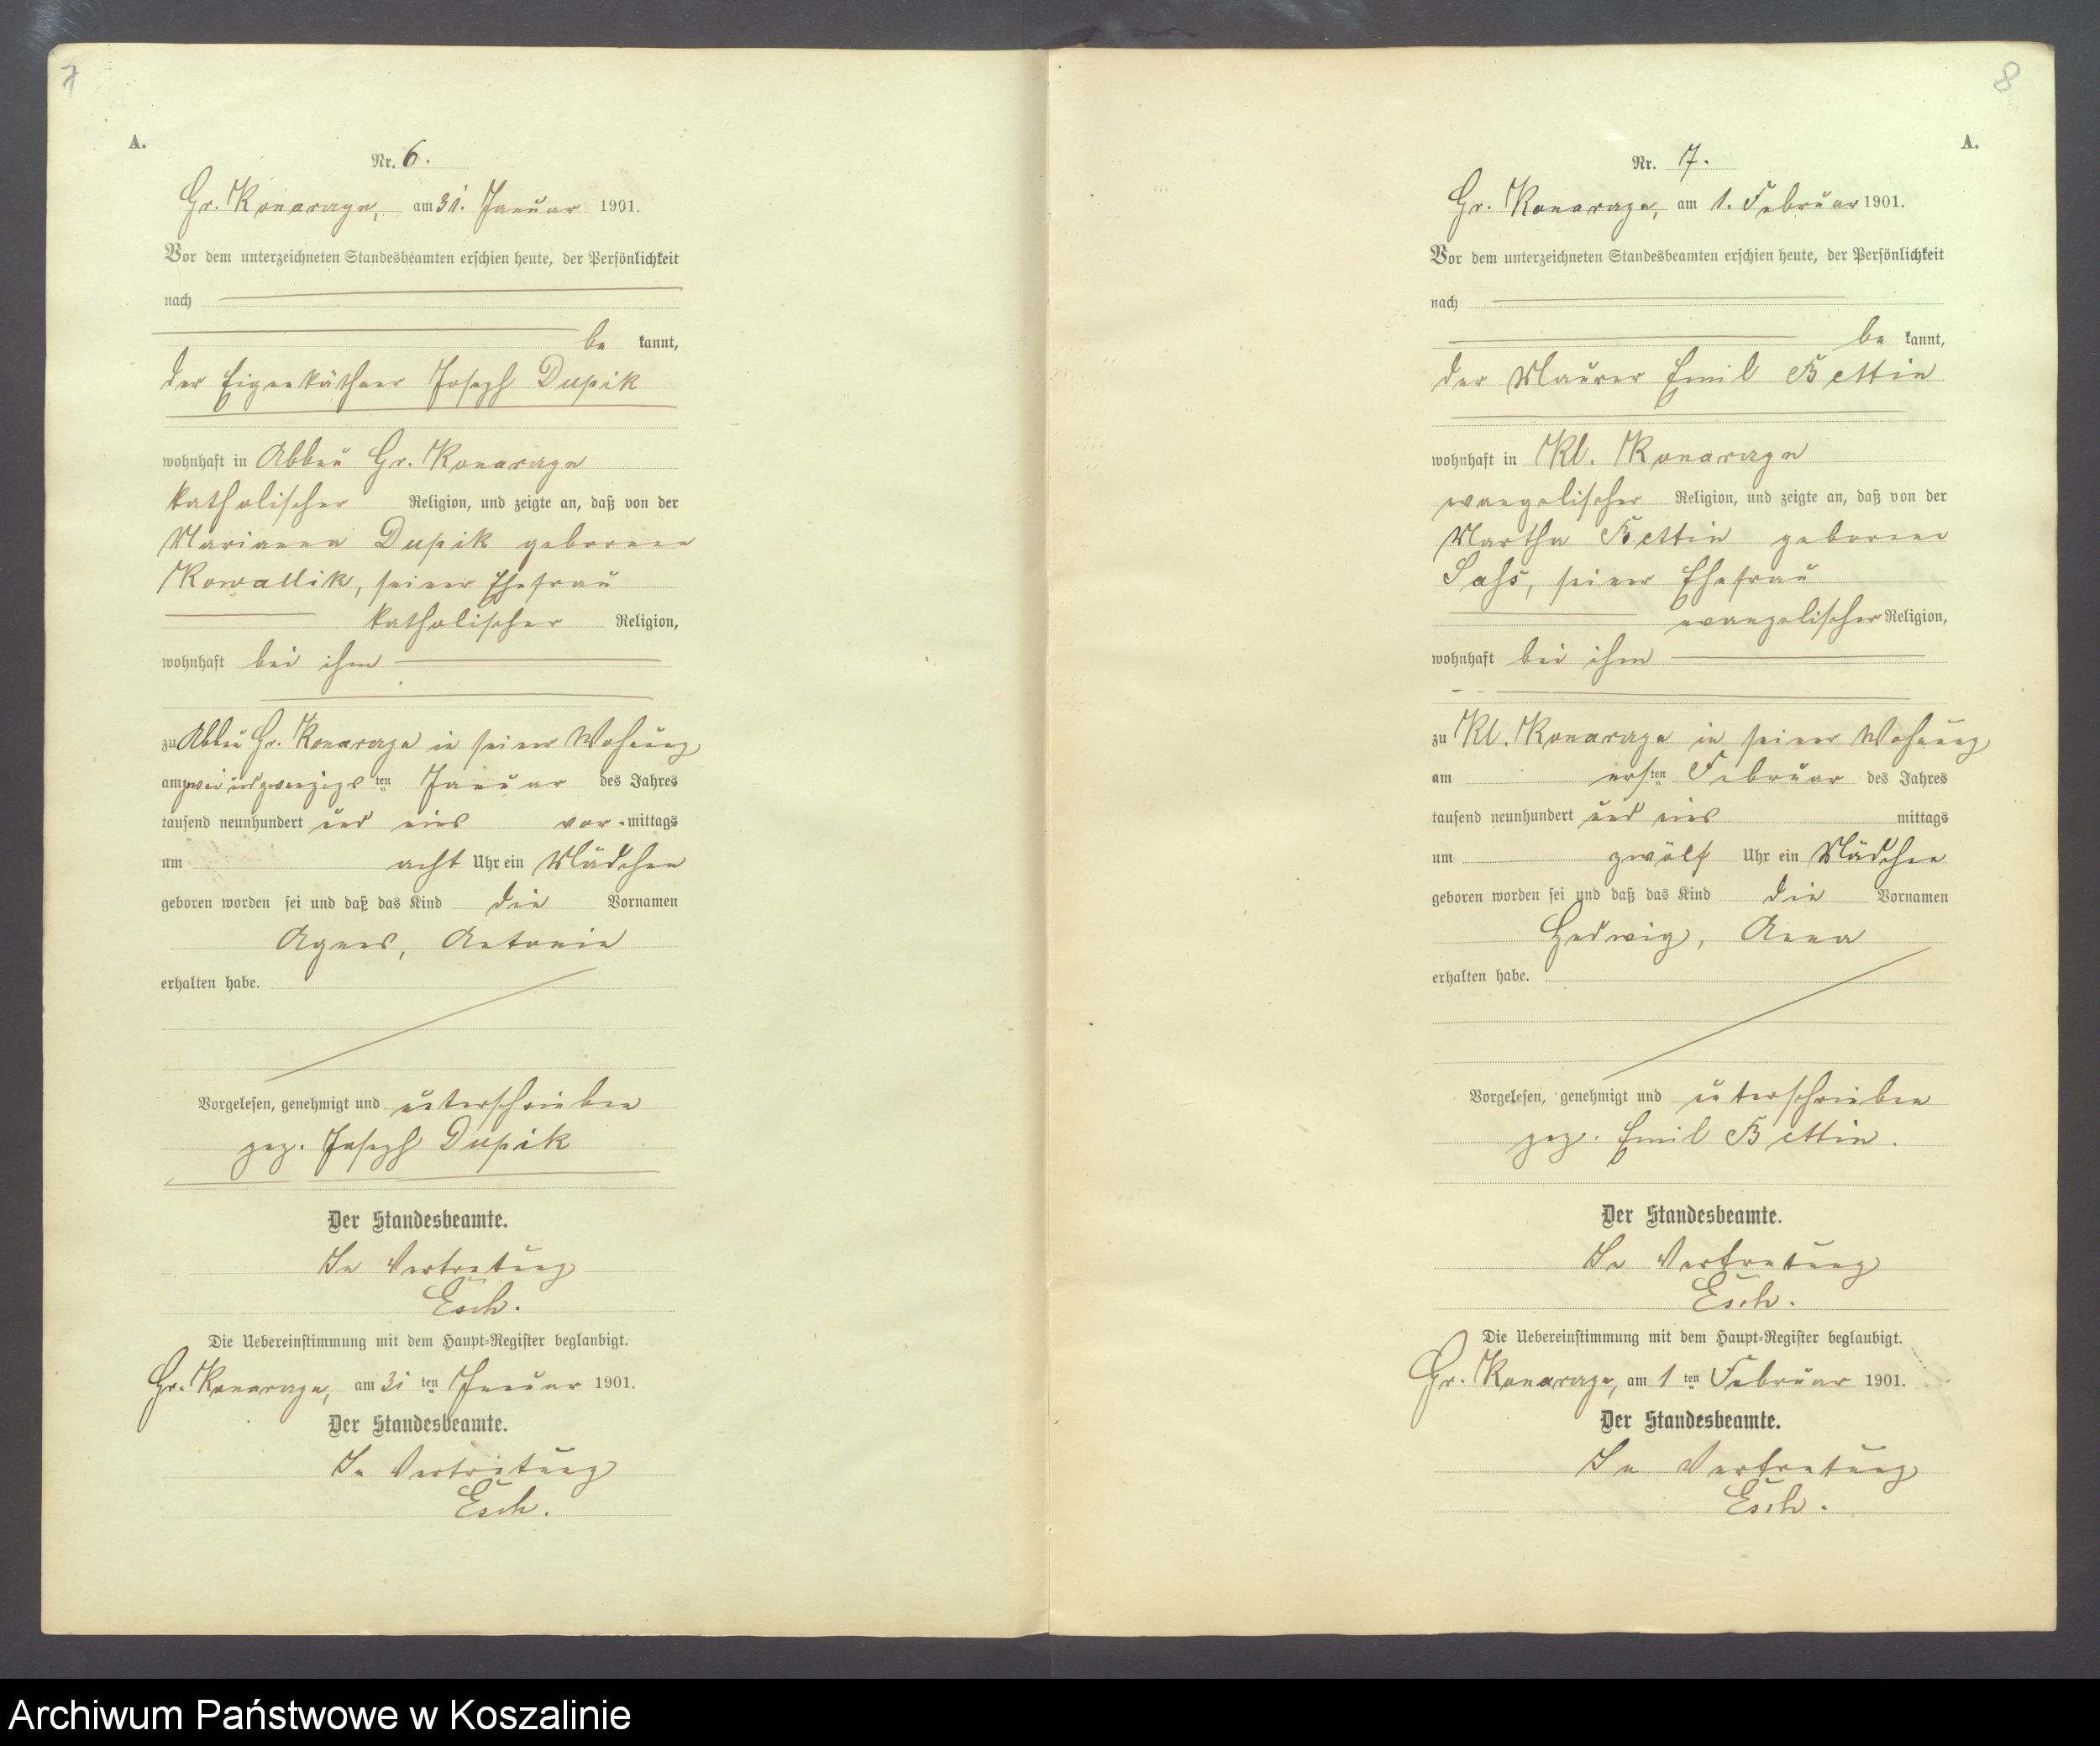 7
A.
Nr. 6.
Gr. Konarzyn, am 31. Januar 1901.
Vor dem unterzeichneten Standesbeamten erschien heute, der Persönlichkeit
nach
be kannt,
der Eigenkäthner Joseph Dupik
wohnhaft in Abbau Gr. Konarzyn
katholischer Religion, und zeigte an, daß von der
Marianna Dupik geborenen
Kowallik, seiner Ehefrau
katholischer Religion,
wohnhaft bei ihm
zu Abbau Gr. Konarzyn in seiner Wohnung
am zwei und zwanzigsten Januar des Jahres
tausend neunhundert und eins vor-mittags
um acht Uhr ein Mädchen
geboren worden sei und daß das Kind die Vornamen
Agnes, Antonie
erhalten habe.
Vorgelesen, genehmigt und unterschrieben
gez. Joseph Dupik
Der Standesbeamte.
In Vertretung
Esch.
Die Uebereinstimmung mit dem Haupt-Register beglaubigt.
Gr. Konarzyn, am 31 ten Januar 1901.
Der Standesbeamte.
In Vertretung
Esch.
8
A.
Nr. 7.
Gr. Konarzyn, am 1. Februar 1901.
Vor dem unterzeichneten Standesbeamten erschien heute, der Persönlichkeit
nach
be kannt,
der Maurer Emil Bettin
wohnhaft in Kl. Konarzyn
evangelischer Religion, und zeigte an, daß von der
Martha Bettin geborene
Sass, seiner Ehefrau
evangelischer Religion,
wohnhaft bei ihm
zu Kl. Konarzyn in seiner Wohnung
am ersten Februar des Jahres
tausend neunhundert und eins mittags
um zwölf Uhr ein Mädchen
geboren worden sei und daß das Kind die Vornamen
Hedwig, Anna
erhalten habe.
Vorgelesen, genehmigt und unterschrieben
gez. Emil Bettin.
Der Standesbeamte.
In Vertretung
Esch.
Die Uebereinstimmung mit dem Haupt-Register beglaubigt.
Gr. Konarzyn, am 1 ten Februar 1901.
Der Standesbeamte.
In Vertretung
Esch.
Archiwum Państwowe w Koszalinie